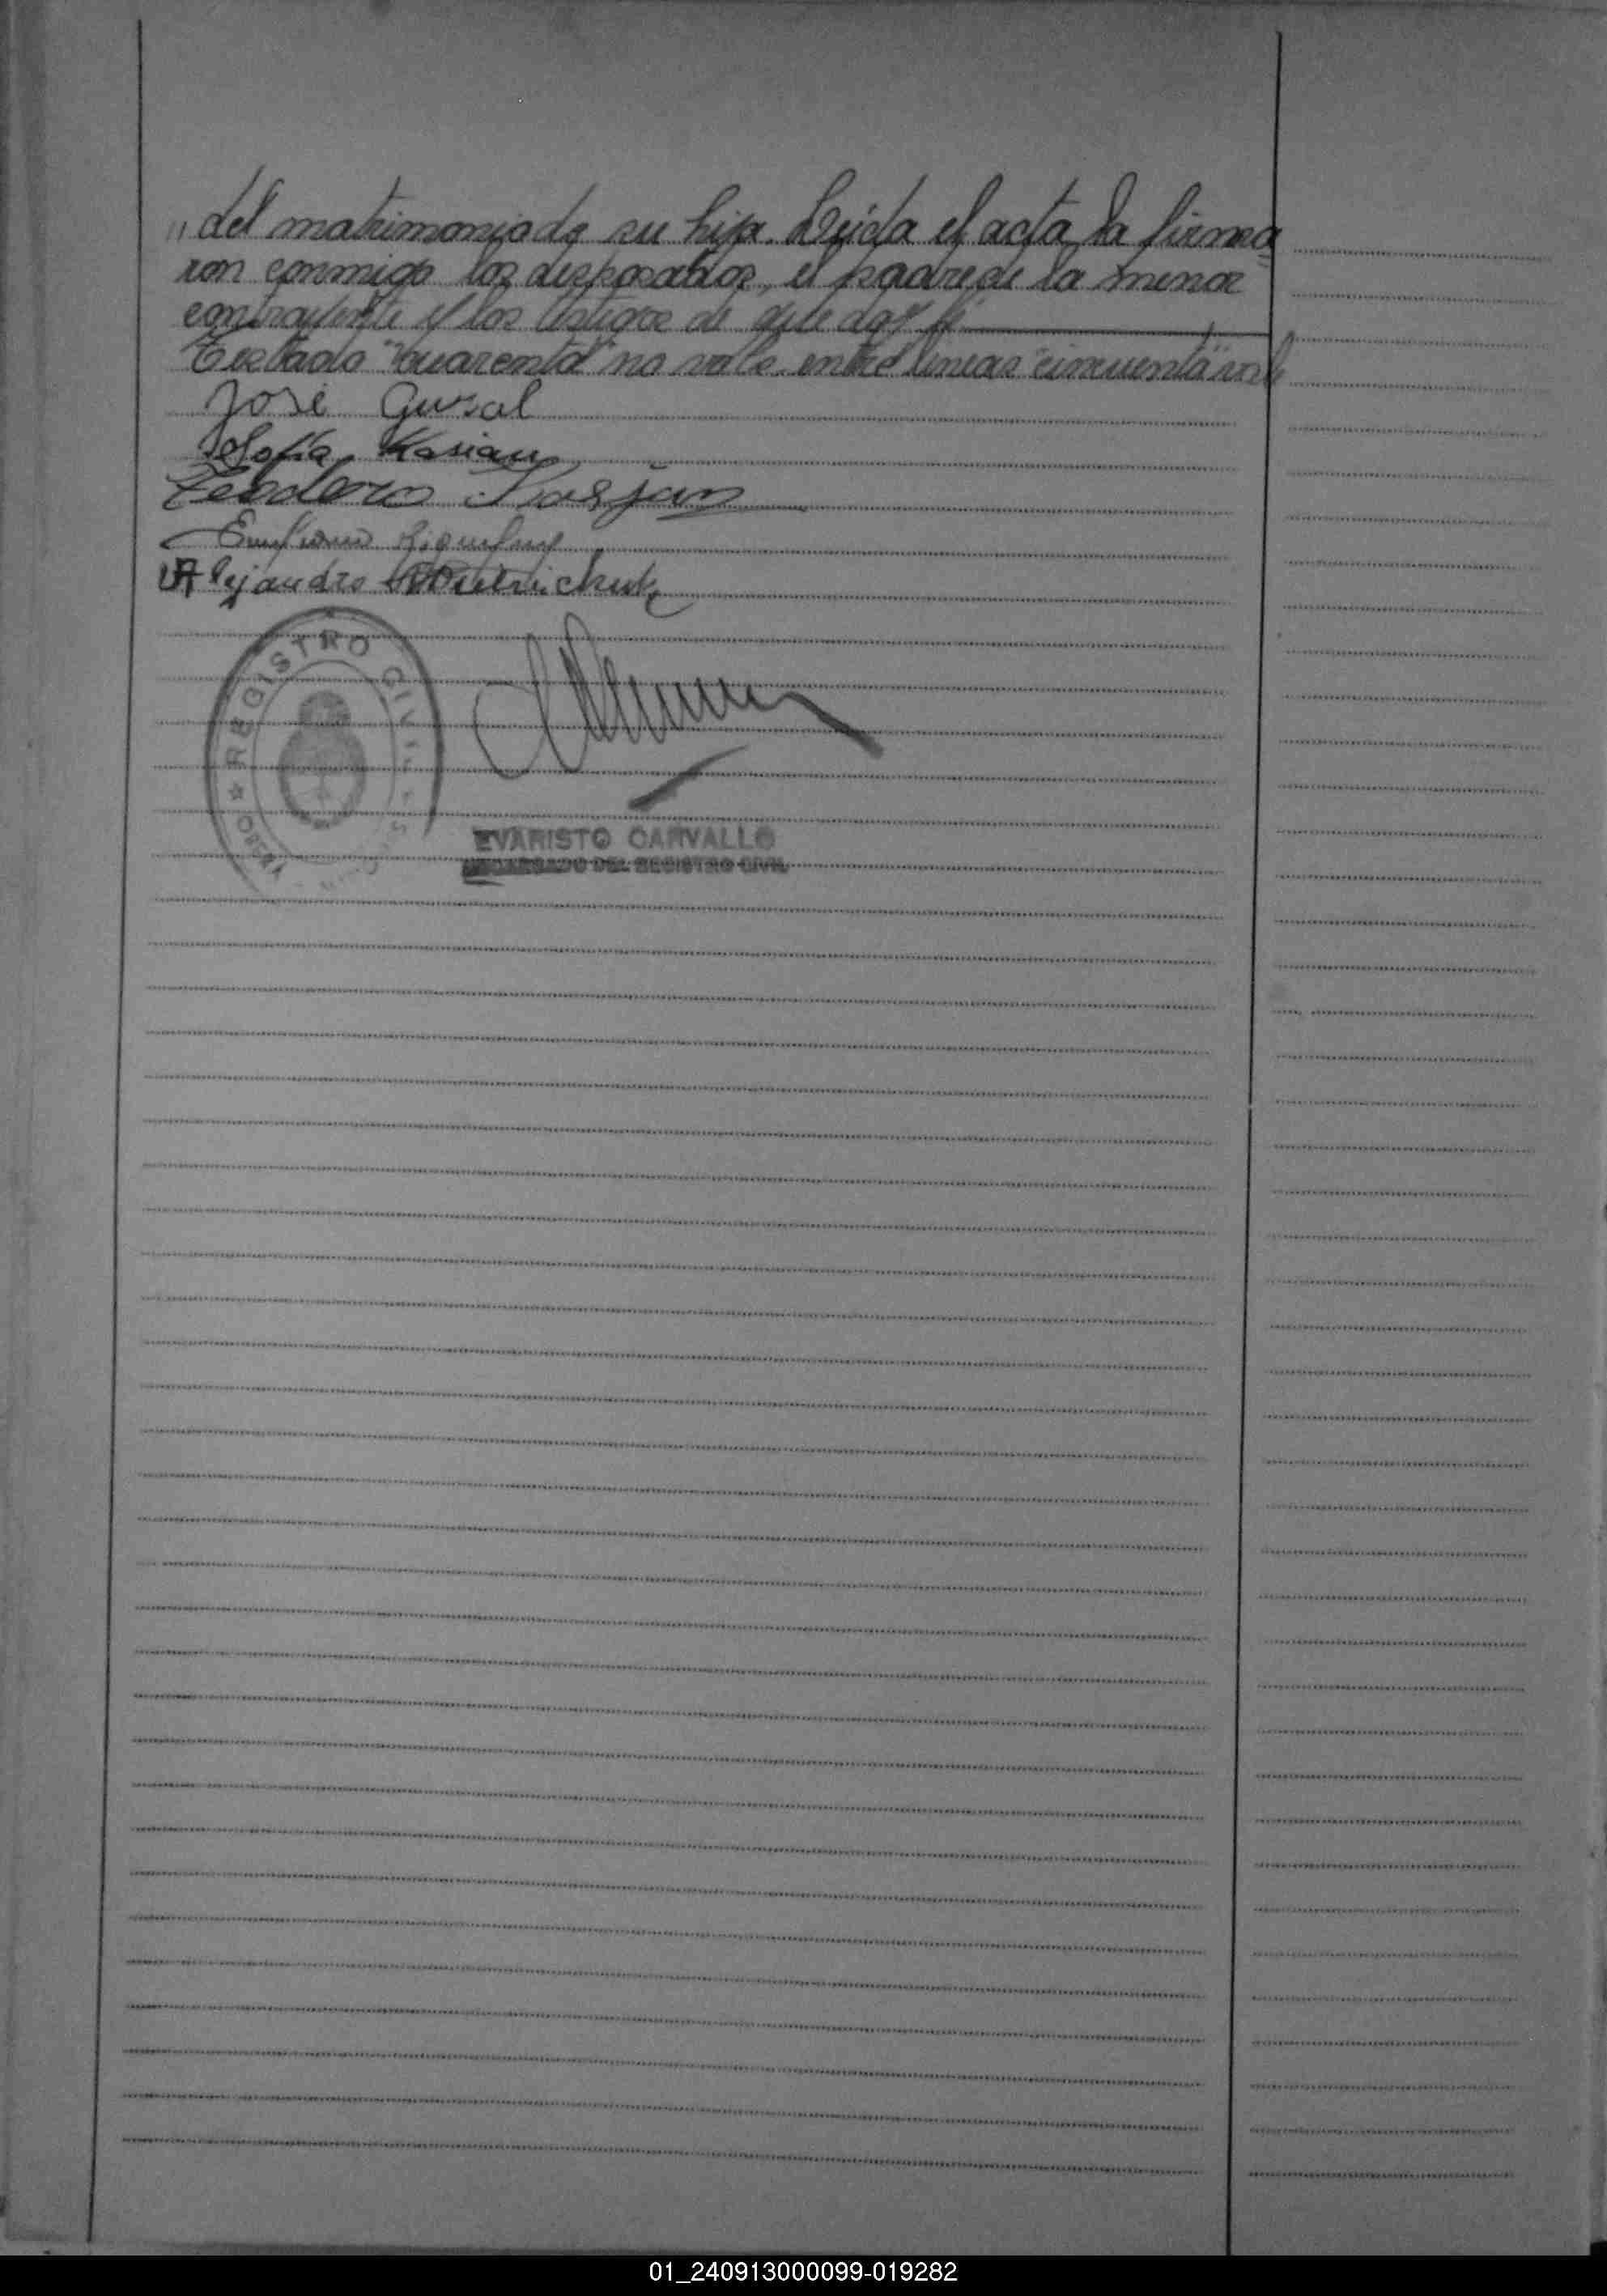 " del matrimonio de su hija. Leida el acta la firma=
ron conmigo los desposados, el padre de la menor
contrayente y los testigos de que doy fé
Testado "cuarenta" no vale. entre lineas "cincuenta" vale
José Gural
Sofia Kasian
Teodoro
Alejandro
REGISTRO CIVIL
EVARISTO CARVALLO
ENCARGADO DEL REGISTRO CIVIL
01_240913000099-019282